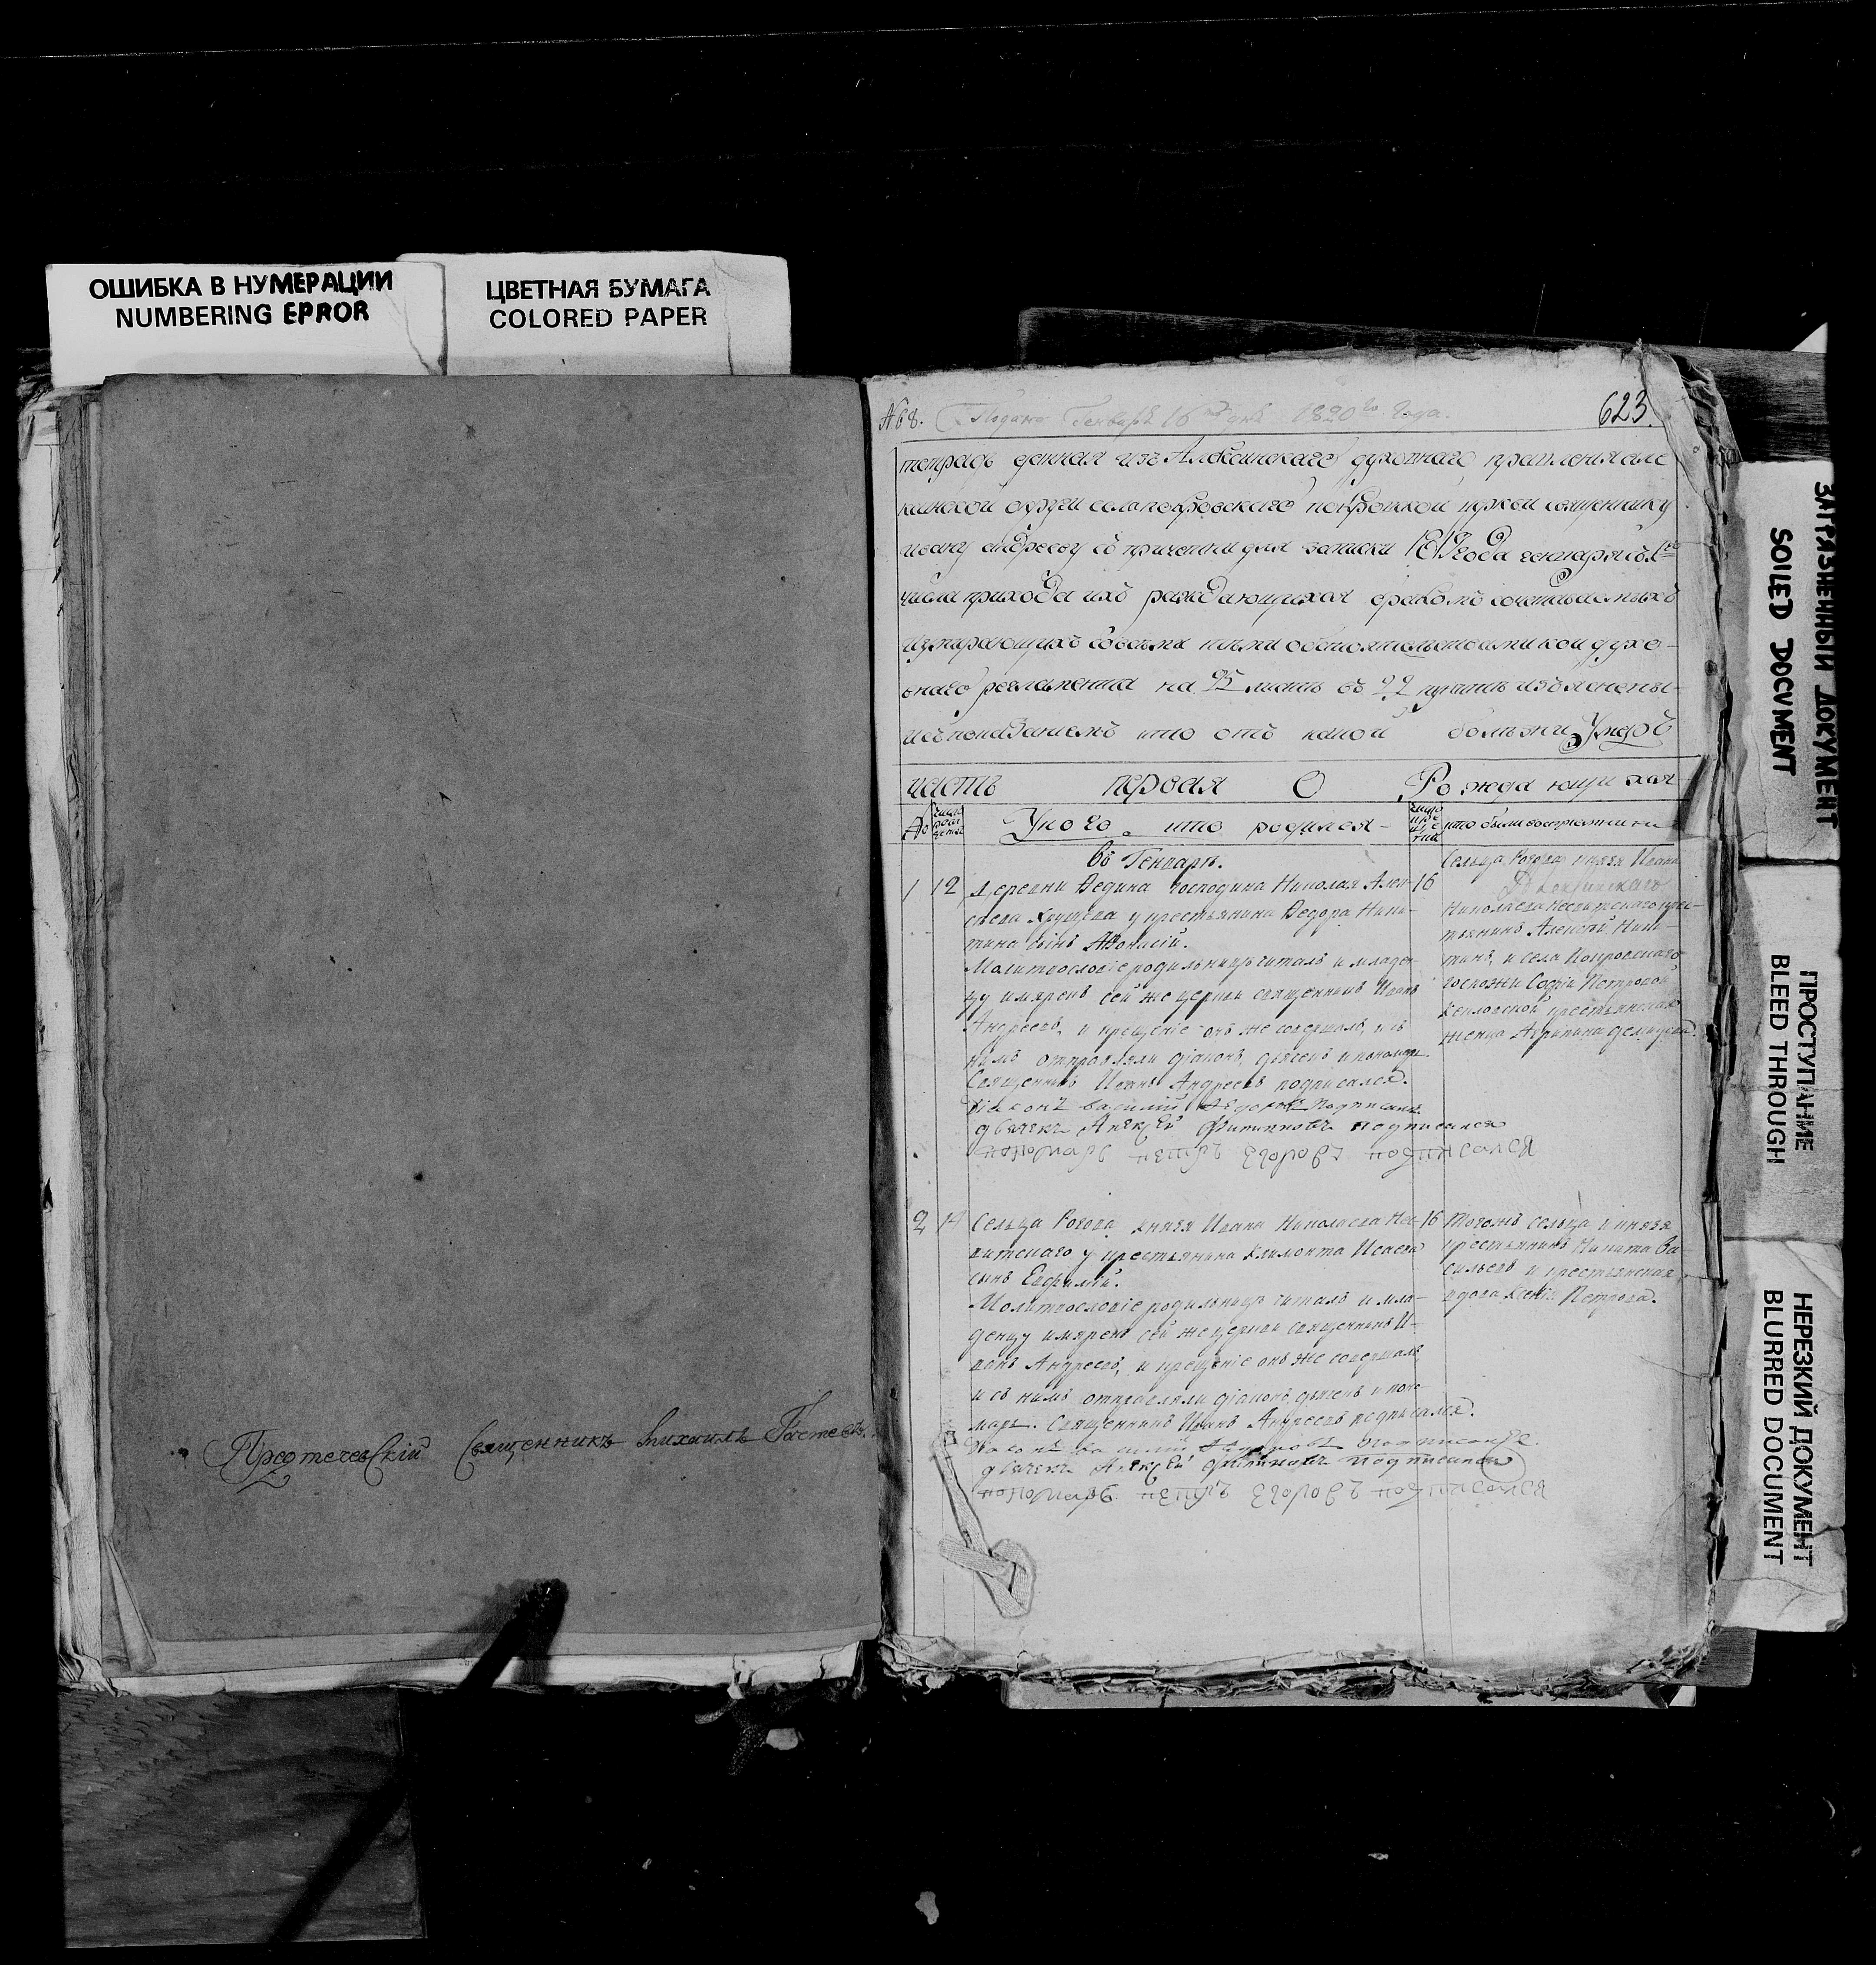 ОШИБКА В НУМЕРАЦИИ
NUMBERING ERROR
ЦВЕТНАЯ БУМАГА
COLORED PAPER
Предтечевскій Священникъ Михаилъ
№68. Подано Генваря 16 дня 1820го Года.
623.
тетрадь данная изъ Алексинскаго духовнаго правления але
кинской округи села покровскаго покровской церкви священнику
ивану андрееву съ причетом для записки года генваря съ 1го
числа прихода ихъ раждающихся бракомъ сочетаваемыхъ
иумирающихъ совсеми теми обстоятельствами кои духо-
внаго регламента на листе въ 22 пункте изъяснены-
исъпоказаниемъ кто отъ какой болезни Умеръ
часть первая О Рожда ющи хся
№
число рождения
У кого кто родился
число крещения
кто были восприемники
Въ Генваре.
1 12 Деревни Дедина господина Николая Алек-
сеева Хрущева у крестьянина Федора Ники-
тина сынъ Афонасий.
Молитвословіе родильнице читалъ и младен-
цу имярекъ сей же церкви священникъ Иванъ
Андреевъ, и крещеніе онъ же совершалъ, и съ
нимъ отправляли діаконъ, дьячекъ и пономарь.
Священникъ Иванъ Андреевъ подписался.
Діаконъ василій Федоровъ подписался
дьячекъ Алексей Филиповъ подписался
пономарь петръ Егоровъ подписался
16
Сельца Рогова князя Ивана
Николаева Несвитскаго крес-
тьянинъ Алексей Ники-
тинъ, и села Покровскаго
госпожи Софіи Петровой
крестьянская
женка Агрипина
2 14 Сельца Рогова князя Ивана Николаева Нес-
витскаго у крестьянина Климонта Исаева
сынъ Евфимій.
Молитвословіе родильнице читалъ и мла-
денцу имярекъ сей же церкви священникъ И-
ванъ Андреевъ, и крещеніе онъ же совершалъ,
и съ нимъ отправляли діаконъ, дьячекъ и поно-
марь. Священникъ Иванъ Андреевъ подписался.
Діаконъ василій Федоровъ подписался.
дьячекъ Алексей Филиповъ подписался
пономарь петръ Егоровъ подписался
16
Тогожъ сельца и князя
крестьянинъ Никита Ва-
сильевъ и крестьянская
вдова Ксенія Петрова.
ЗАГРЯЗНЕННЫЙ ДОКУМЕНТ
SOILED DOCUMENT
ПРОСТУПАНИЕ
BLEED THROUGH
НЕРЕЗКИЙ ДОКУМЕНТ
BLURRED DOCUMENT